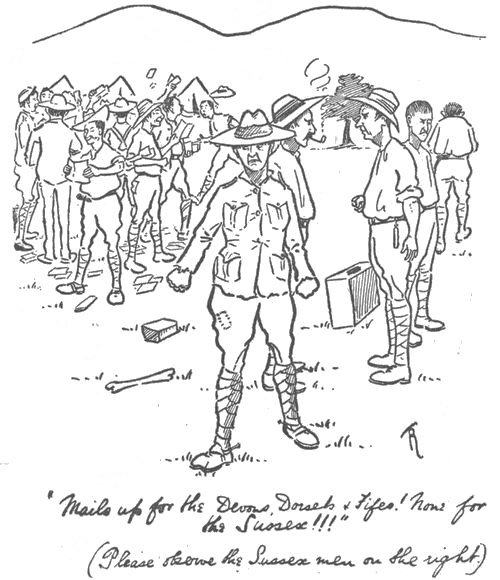 "Mails up for the Devons, Dorsets & Fifes! None for
the Sussex!!!"
(Please observe the Sussex men on the right.)